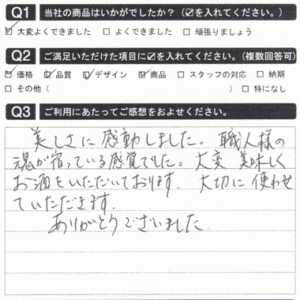 Q1 当社の商品はいかがでしたか？（☑を入れてください。）
☑大変よくできました □よくできました □頑張りましょう
Q2 ご満足いただけた項目に☑を入れてください。（複数回答可）
☑価格 ☑品質 ☑デザイン ☑商品 □スタッフの対応 □納期
□その他（ ） □特になし
Q3 ご利用にあたってご感想をおよせください。
美しさに感動しました。職人様の
魂が宿っている感覚でした。大変美味しく
お酒をいただいております。大切に使わせ
ていただきます。
ありがとうございました